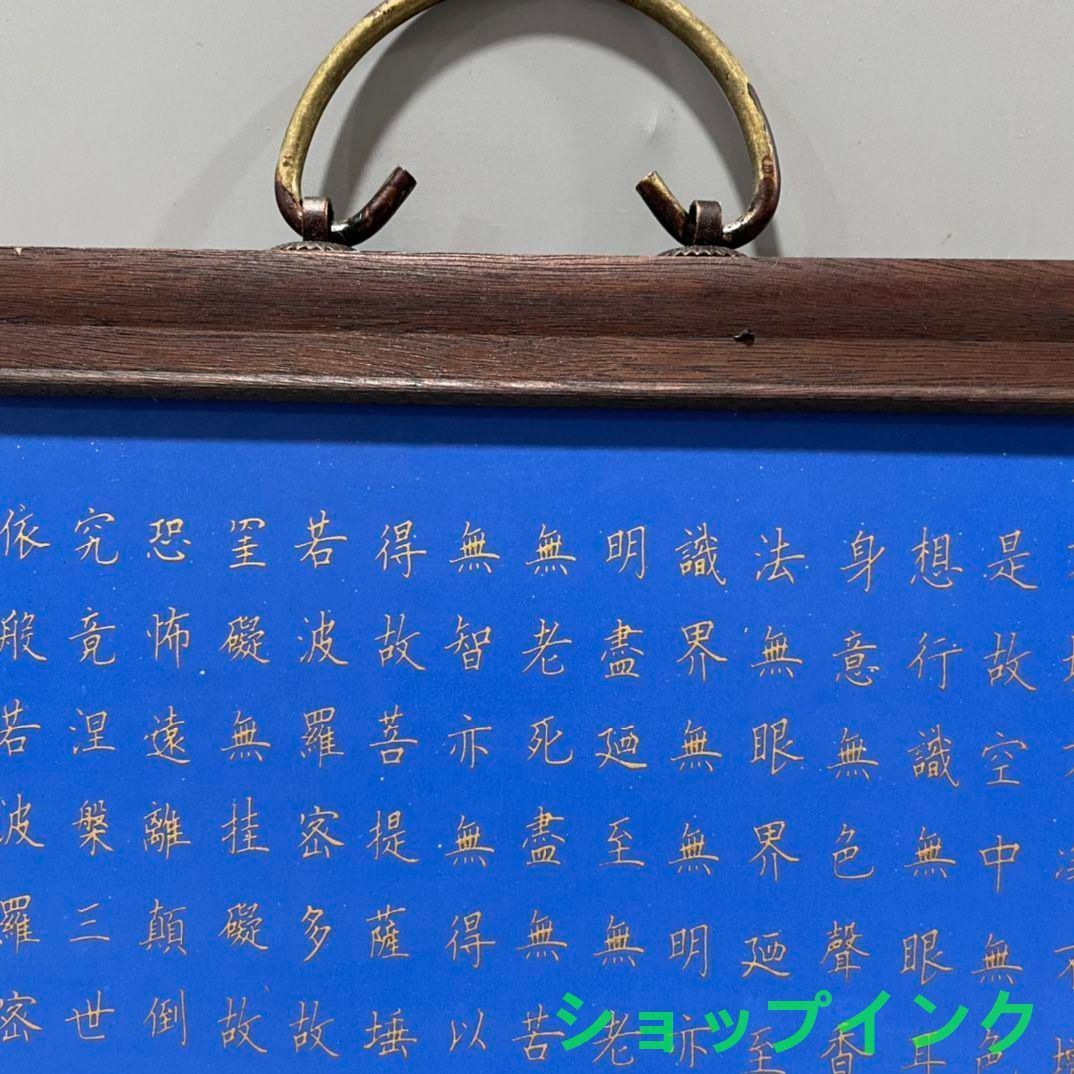 是故空中無色
想行識無眼耳
身意無色聲香
法無眼界廼至
識界無無明亦
明盡廼至無老
無老死盡無苦
無智亦無得以
得故菩提薩埵
若波羅密多故
罣礙無挂礙故
恐怖遠離顛倒
究竟涅槃三世
依般若波羅密
ショップインク